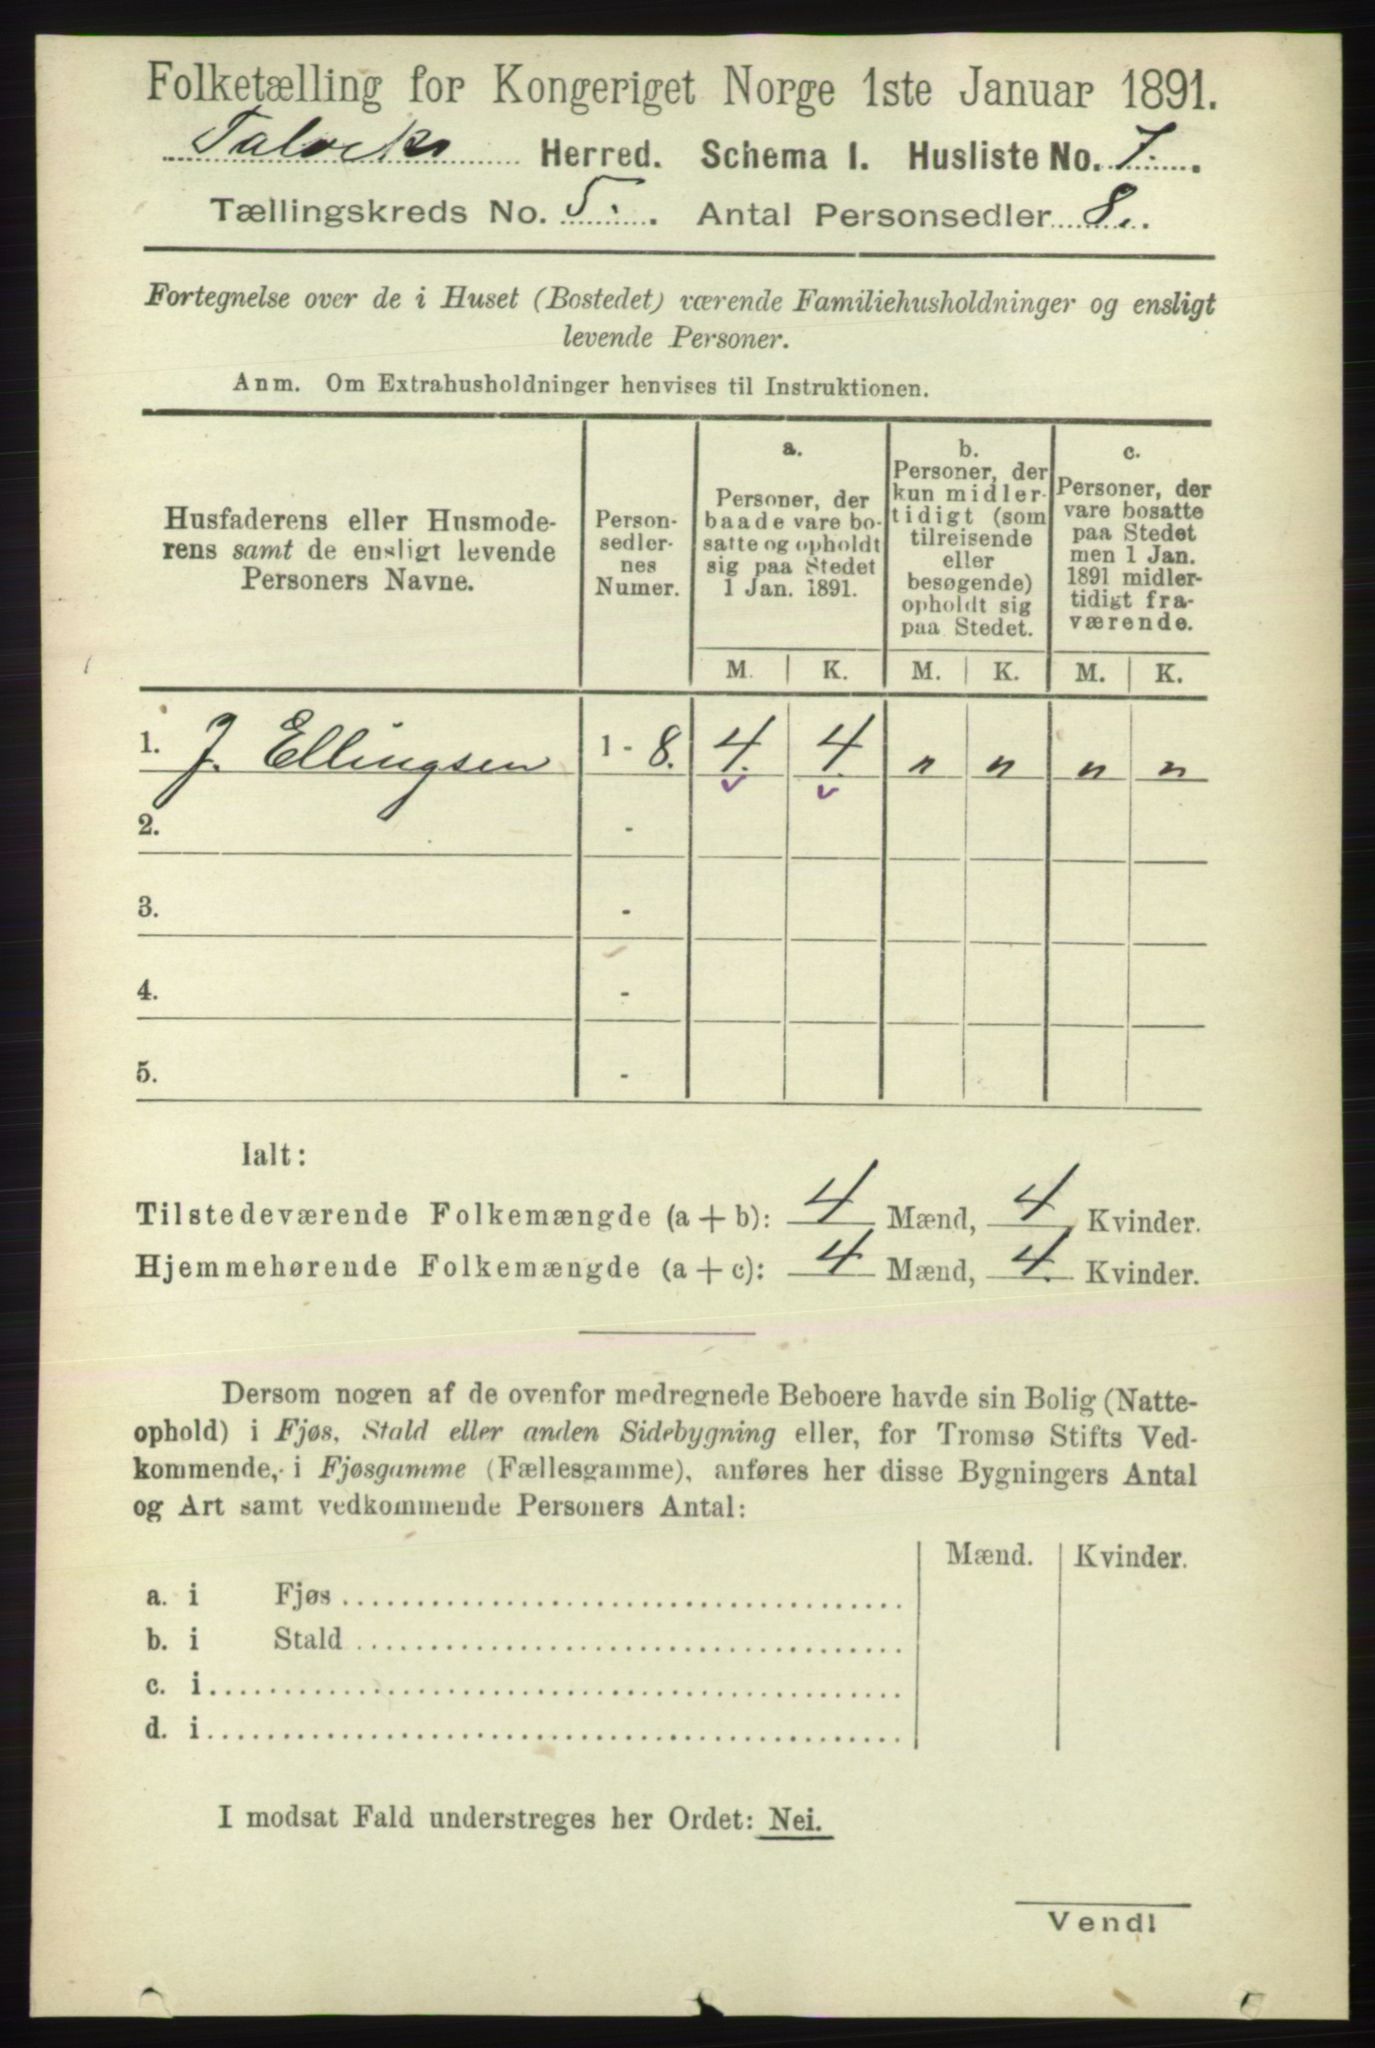 Folketælling for Kongeriget Norge 1ste Januar 1891.
Herred. Schema I. Husliste No. 7.
Tællingskreds No. 5. Antal Personsedler 8.
Fortegnelse over de i Huset (Bostedet) værende Familiehusholdninger og ensligt
levende Personer.
Anm. Om Extrahusholdninger henvises til Instruktionen.
Husfaderens eller Husmode-
rens samt de ensligt levende
Personers Navne.
Person-
sedler-
nes
Numer.
a.
Personer, der
baade vare bo-
satte og opholdt
sig paa Stedet
1 Jan. 1891.
b.
Personer, der
kun midler-
tidigt (som
tilreisende
eller
besøgende)
opholdt sig
paa Stedet.
c.
Personer, der
vare bosatte
paa Stedet
men 1 Jan.
1891 midler-
tidigt fra-
værende.
M. K. M. K. M. K.
1. J. Ellingsen 1 - 8. 4. 4. " " " "
2. -
3. -
4. -
5. -
Ialt:
Tilstedeværende Folkemængde (a + b): 4 Mænd, 4 Kvinder.
Hjemmehørende Folkemængde (a + c): 4 Mænd, 4. Kvinder.
Dersom nogen af de ovenfor medregnede Beboere havde sin Bolig (Natte-
ophold) i Fjøs, Stald eller anden Sidebygning eller, for Tromsø Stifts Ved-
kommende, i Fjøsgamme (Fællesgamme), anføres her disse Bygningers Antal
og Art samt vedkommende Personers Antal:
Mænd. Kvinder.
a. i Fjøs
b. i Stald
c. i
d. i
I modsat Fald understreges her Ordet: Nei.
Vend!